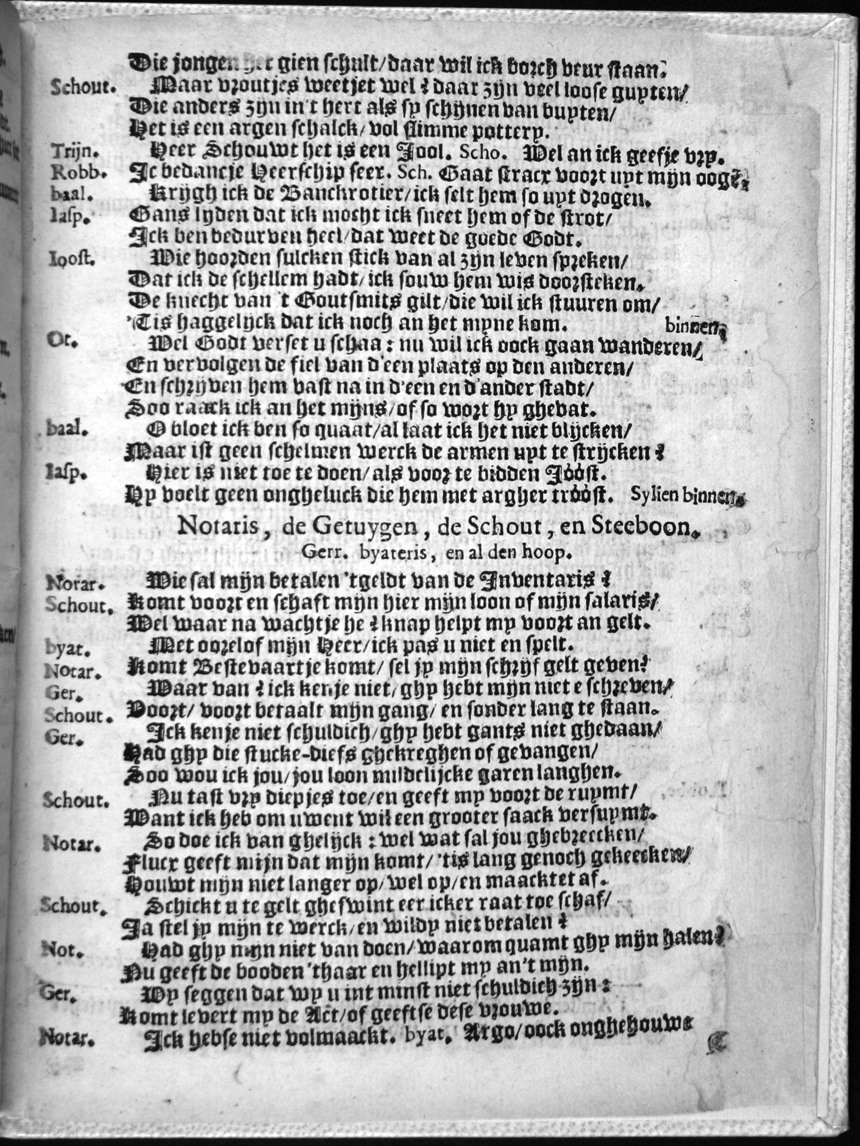 Die jongen het gien schult/daar wil ick borch veur staan.
Schout. Maar vroutjes weetjet wel? daar zijn veel loose guyten/
Die anders zijn in't hert als sy schijnen van buyten/
Het is een argen schalck/vol slimme pottery.
Trijn. Heer Schouwt het is een Jool. Scho. Wel an ick geefje vry.
Robb. Ic bedancje Heerschip seer. Sch. Gaat stracx voort uyt mijn ooge.
baal. Krijgh ick de Banckrotier/ick selt hem so uyt drogen.
Iasp. Gans lyden dat ick mocht ick sneet hem of de strot/
Ick ben bedurven heel/dat weet de goede Godt.
Ioost. Wie hoorden sulcken stick van al zijn leven spreken/
Dat ick de schellem hadt/ick souw hem wis doorsteken.
De knecht van 't Goutsmits gilt/die wil ick stuuren om/
'Tis haggelijck dat ick noch an het myne kom. binnen.
Ot. Wel Godt verset u schaa: nu wil ick oock gaan wanderen/
En vervolgen de fiel van d'een plaats op den anderen/
En schrijven hem vast na in d'een en d'ander stadt/
Soo raack ick an het mijns/of so wort hy ghevat.
baal. O bloet ick ben so quaat/al laat ick het niet blijcken/
Maar ist geen schelmen werck de armen uyt te strijcken?
Iasp. Hier is niet toe te doen/als voor te bidden Jóóst.
Hy voelt geen ongheluck die hem met argher tróóst. Sylien binnen.
Notaris, de Getuygen, de Schout, en Steeboon.
Gerr. byateris, en al den hoop.
Notar. Wie sal mijn betalen 'tgeldt van de Inventaris?
Schout. Komt voort en schaft mijn hier mijn loon of mijn salaris/
Wel waar na wachtje he? knap helpt my voort an gelt.
byat. Met oorelof mijn Heer/ick pas u niet en spelt.
Notar. Komt Bestevaartje komt/sel jy mijn schrijf gelt geven?
Ger. Waar van? ick kenje niet/ghy hebt mijn niet e schreven/
Schout. Voort/voort betaalt mijn gang/en sonder lang te staan.
Ger. Ick kenje niet schuldich/ghy hebt gants niet ghedaan/
Had ghy die stucke-diefs ghekreghen of gevangen/
Soo wou ick jou/jou loon mildelijcke garen langhen.
Schout. Nu tast vry diepjes toe/en geeft my voort de ruymt/
Want ick heb om uwent wil een grooter saack versuymt.
Notar. So doe ick van ghelijck: wel wat sal jou ghebreecken/
Flucx geeft mijn dat mijn komt/'tis lang genoch gekeecken/
Houwt mijn niet langer op/wel op/en maacktet af.
Schout. Schickt u te gelt gheswint eer icker raat toe schaf/
Ja stel jy mijn te werck/en wildy niet betalen?
Not. Had ghy mijn niet van doen/waarom quamt ghy mijn halen?
Nu geeft de booden 'thaar en hellipt my an't mijn.
Ger. Wy seggen dat wy u int minst niet schuldich zijn:
Komt levert my de Act/of geeftse dese vrouwe.
Notar. Ick hebse niet volmaackt. byat. Argo/oock onghehouwe
C